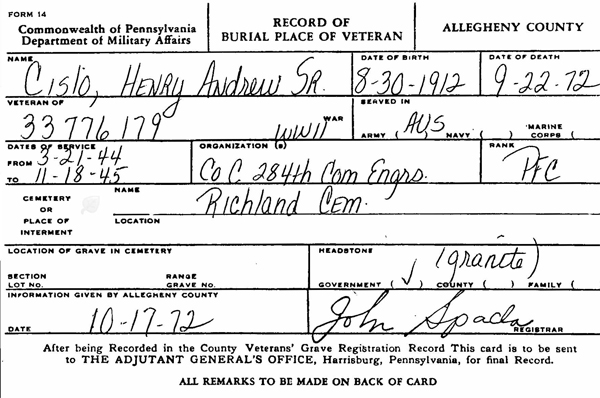 FORM 14
Commonwealth of Pennsylvania
Department of Military Affairs
RECORD OF
BURIAL PLACE OF VETERAN
ALLEGHENY COUNTY
NAME
Cislo, HENRY Andrew SR.
DATE OF BIRTH
8-30-1912
DATE OF DEATH
9-22-72
VETERAN OF
33776179 WWII WAR
SERVED IN
ARMY ( AUS ) NAVY ( ) MARINE CORPS ( )
DATES OF SERVICE
FROM 3-21-44
TO 11-18-45
ORGANIZATION (s)
Co C. 284th Com Engrs.
RANK
PFC
CEMETERY
OR
PLACE OF
INTERMENT
NAME
Richland Cem.
LOCATION
LOCATION OF GRAVE IN CEMETERY
SECTION RANGE
LOT NO. GRAVE NO.
HEADSTONE
(granite)
GOVERNMENT ( ✓ ) COUNTY ( ) FAMILY (
INFORMATION GIVEN BY ALLEGHENY COUNTY
DATE 10-17-72
John Spada REGISTRAR
After being Recorded in the County Veterans' Grave Registration Record This card is to be sent
to THE ADJUTANT GENERAL'S OFFICE, Harrisburg, Pennsylvania, for final Record.
ALL REMARKS TO BE MADE ON BACK OF CARD